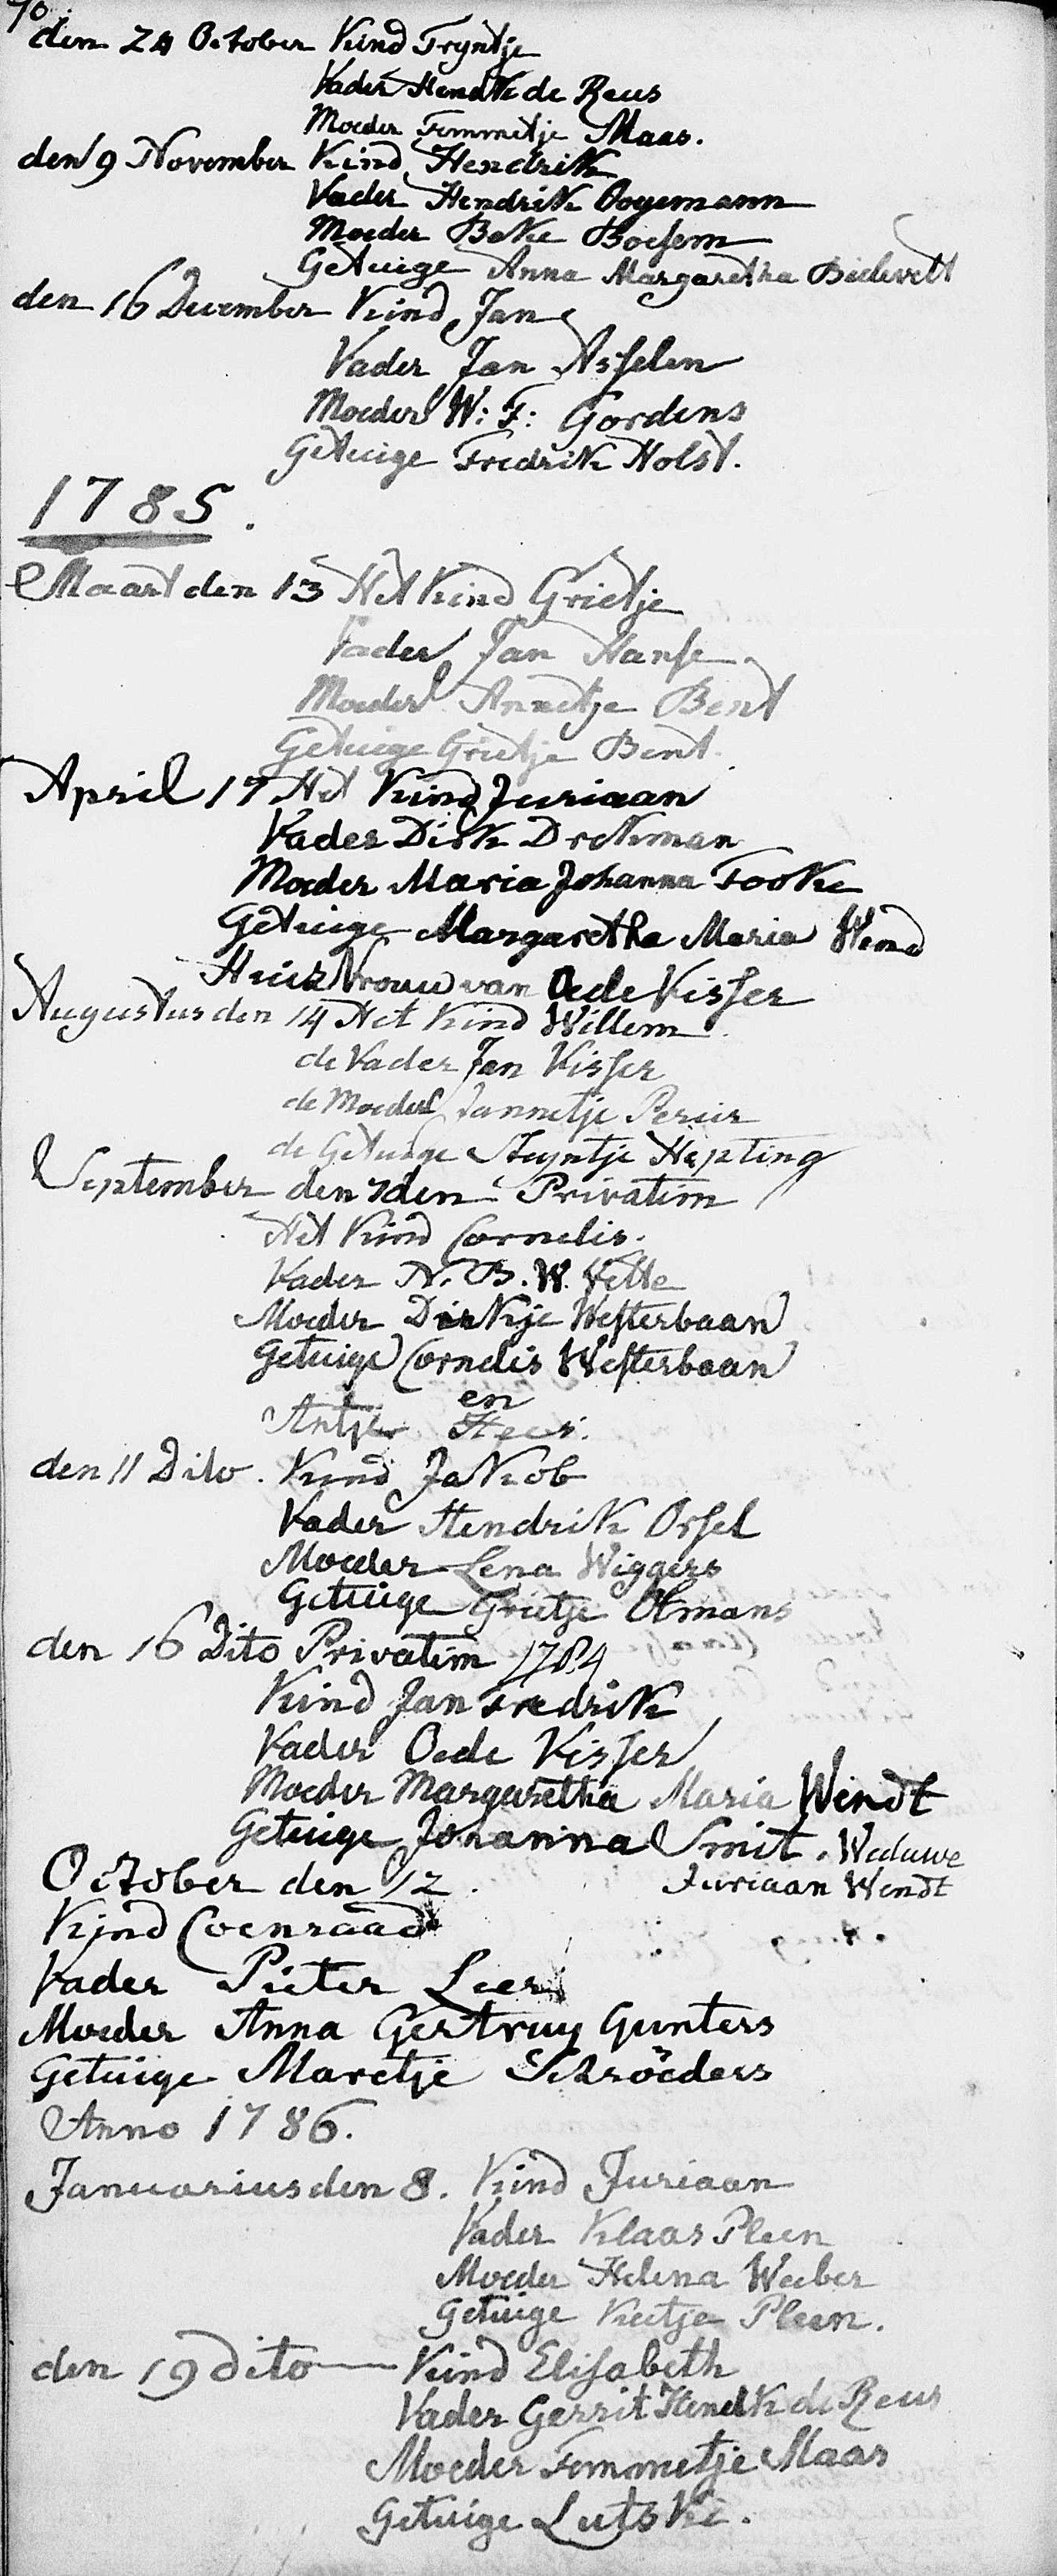 70
den 24 October Kind Tryntje
Vader Hendk de Reus
Moeder Femmetje Maas.
den 9 November Kind Hendrik
Vader Hendrik Ooyemann
Moeder Beke Boesem
Getuige Anna Margaretha Bielevelt
den 16 December Kind Jan
Vader Jan Asselen
Moeder W: F: Gordens
Getuige Fredrik Holst.
1785.
Maart den 13 Het Kind Grietje
Vader Jan Hanse
Moeder Annetje Bent
Getuige Grietje Bent.
April 17 Het Kind Juriaan
Vader Dirk Drekman
Moeder Maria Johanna Fooke
Getuige Margaretha Maria Wend
Huis Vrouw van Oede Visser
Augustus den 14 Het Kind Willem
de Vader Jan Visser
de Moeder Jannetje
de Getuige Steyntje Hepting
September den 7den Privatim
Het Kind Cornelis.
Vader N. B. W. Vette
Moeder Dirkje Westerbaan
Getuige Cornelis Westerbaan
en
Antje
den 11 Dito. Kind Jakob
Vader Hendrik Orsel
Moeder Lena Wiggers
Getuige Grietje Olmans
den 16 Dito Privatim 1784
Kind Jan Fredrik
Vader Oede Visser
Moeder Margaretha Maria Wendt
Getuige Johanna Smit. Weduwe
Juriaan Wendt
October den 12.
Kind Coenraad
Vader Pieter Leer
Moeder Anna Gertruy Gunters
Getuige Maretje Schröeders
Anno 1786.
Januarius den 8. Kind Juriaan
Vader Klaas Pleen
Moeder Helena Weeber
Getuige Pleen.
den 19 dito Kind Elisabeth
Vader Gerrit Hendk de Reus
Moeder Femmetje Maas
Getuige Luts Ke.